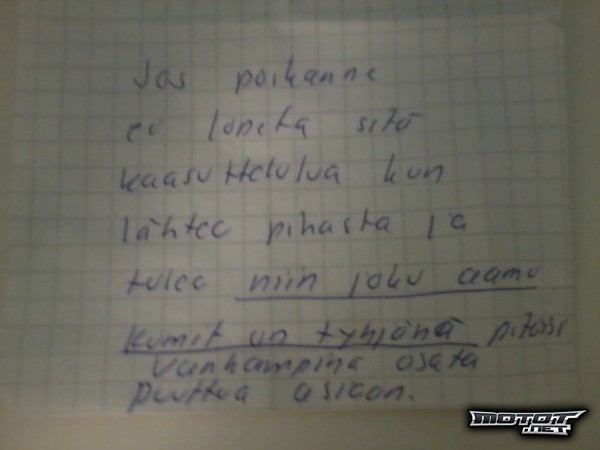 Jos poikanne
ei lopeta sitä
kaasuttelulua kun
lähtee pihasta ja
tulee niin joku aamu
kumit on tyhjänä pitäisi
vanhampina osata
puuttua asiaan.
MOTOT
.NET